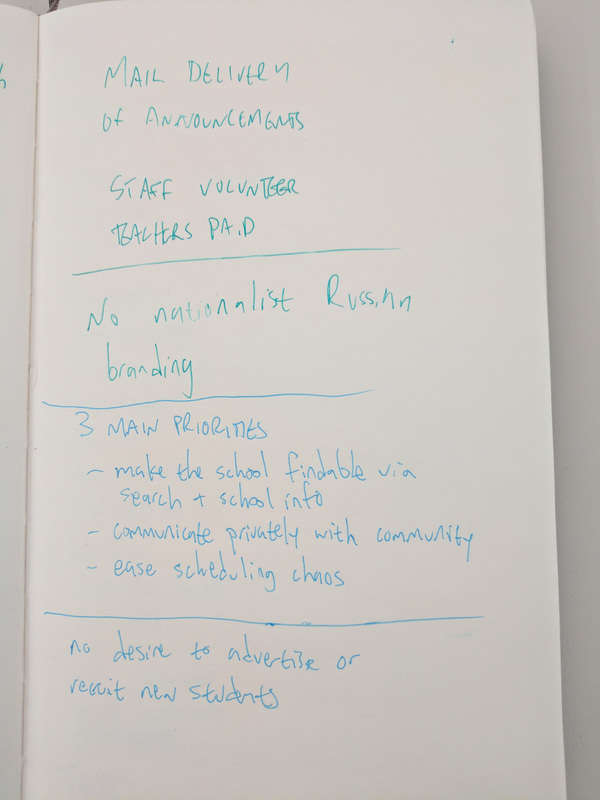 MAIL DELIVERY
OF ANNOUNCEMENTS
STAFF VOLUNTEER
TEACHERS PAID
No nationalist Russian
branding
3 MAIN PRIORITIES
- make the school findable via
search + school info
- communicate privately with community
- ease scheduling chaos
no desire to advertise or
recruit new students